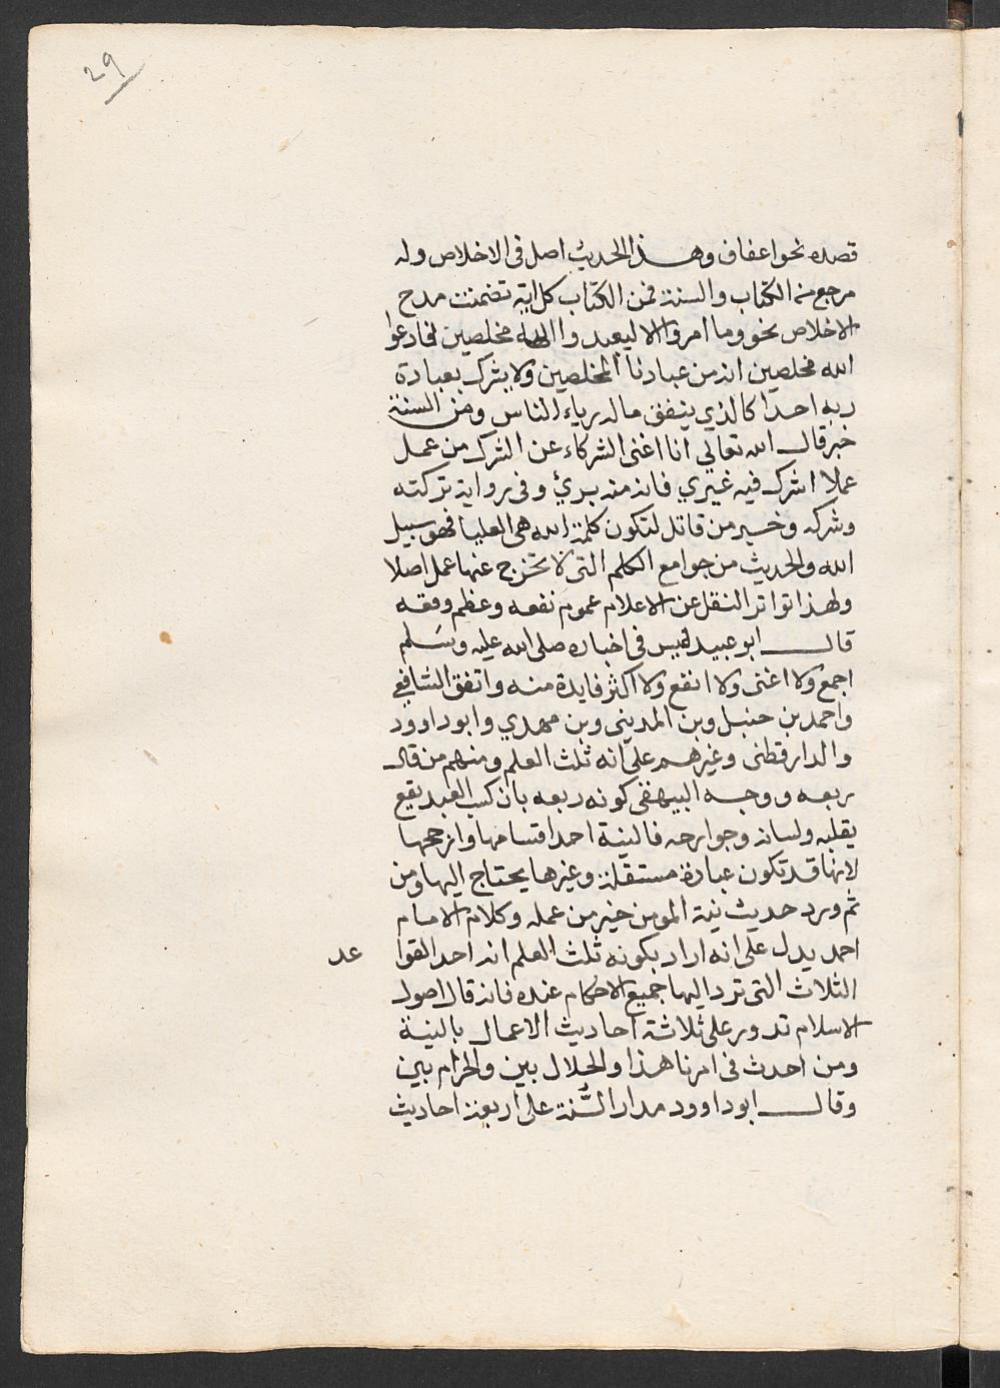 29
قصده نحو اعفاف وهذا الحديث اصل في الاخلاص وله
مرجع من الكتاب والسنة فمن الكتاب كل اية تضمنت مدح
الاخلاص نحو وما امروا الا ليعبدوا الله مخلصين فادعوا
الله مخلصين انه من عبادنا المخلصين ولا يشرك بعبادة
ربه احدا كالذي ينفق ماله رياء الناس ومن السنة
خبر قال الله تعالى انا اغنى الشركاء عن الشرك من عمل
عملا اشرك فيه غيري فانه منه بريء وفي رواية تركته
وشركه وخبر من قاتل لتكون كلمة الله هي العليا فهو سبيل
الله والحديث من جوامع الكلم التي لا تخرج عنها عمل اصلا
ولهذا تواتر النقل عن الاعلام عموم نفعه وعظم وقعه
قال ابو عبيد ليس في اخباره صلى الله عليه وسلم
اجمع ولا اغنى ولا انفع ولا اكثر فايدة منه واتفق الشافعي
واحمد بن حنبل وبن المديني وبن مهدي وابو داوود
والدارقطني وغيرهم على انه ثلث العلم ومنهم من قال
ربعه ووجه البيهقي كونه ربعه بان كسب العبد يقع
بقلبه ولسانه وجوارحه فالنية احد اقسامها وارجحها
لانها قد تكون عبادة مستقلة وغيرها يحتاج اليها ومن
ثم ورد حديث نية المومن خير من عمله وكلام الامام
احمد يدل على انه اراد بكونه ثلث العلم انه احد القوا عد
الثلاث التي ترد اليها جميع الاحكام عنده فانه قال اصول
الاسلام تدور على ثلاثة احاديث الاعمال بالنية
ومن احدث في امرنا هذا والحلال بين والحرام بين
وقال ابو داوود مدار السنة على اربعة احاديث